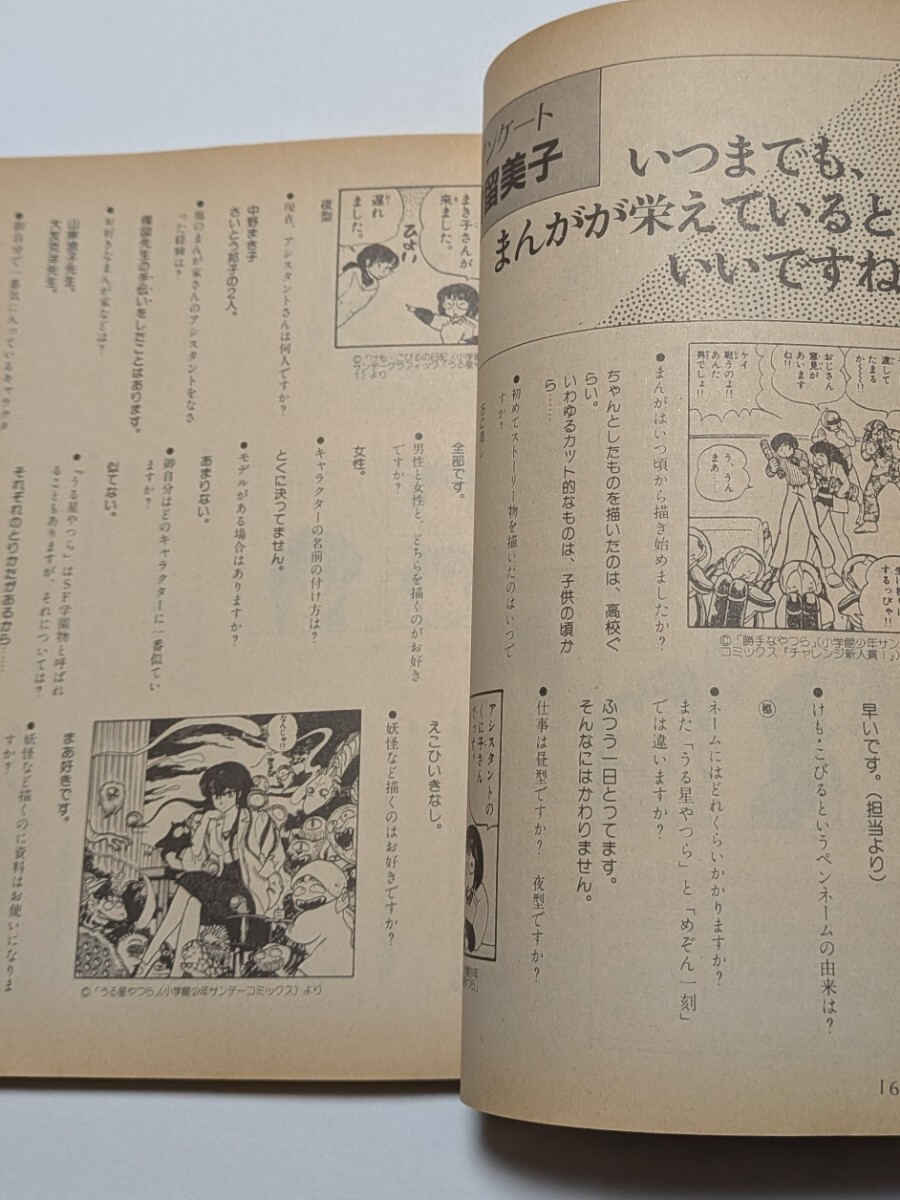 ンケート
留美子
いつまでも、
まんがが栄えていると
いいですね
渡して
たまる
か〜〜!!
おじさん
意見が
あいます
ね!!
ケイ
戦うのよ!!
あんた
男でしょ!!
う、うん
まぁ……
するっぴゃ!!
©「勝手なやつら」(小学館少年サン
コミックス『チャレンジ新人賞
●まんがはいつ頃から描き始めましたか?
ちゃんとしたものを描いたのは、高校ぐ
らい。
いわゆるカット的なものは、子供の頃か
ら……
●初めてストーリー物を描いたのはいつで
すか?
早いです。(担当より)
●けも・こびるというペンネームの由来は?
㊙
●ネームにはどれくらいかかりますか?
また「うる星やつら」と「めぞん一刻」
では違いますか?
ふつう一日とってます。
そんなにはかわりません。
●仕事は昼型ですか? 夜型ですか?
アシスタントの
くに子さん
でっす。
16
まき子さんが
来ました。
遅れ
ました。
ひょい
©「けも・こびるの日記」(小学館
サンデーグラフィック『うる星
より
夜型
●現在、アシスタントさんは何人ですか?
中野まき子
さいとう邦子の2人。
●他のまんが家さんのアシスタントをなさ
った経験は?
楳図先生の手伝いをしたことはあります。
●お好きなまんが家などは?
山岸凉子先生。
大友克洋先生。
●御自分で一番気に入っているキャラクタ
全部です。
●男性と女性と、どちらを描くのがお好き
ですか?
女性。
●キャラクターの名前の付け方は?
とくに決ってません。
●モデルがある場合はありますか?
あまりない。
●御自分はどのキャラクターに一番似てい
ますか?
似てない。
●「うる星やつら」はSF学園物と呼ばれ
ることもありますが、それについては?
それぞれのとりかたがあるから……
えこひいきなし。
●妖怪など描くのはお好きですか?
まあ好きです。
●妖怪など描くのに資料はお使いになりま
すか?
©「うる星やつら」(小学館少年サンデーコミックス)より